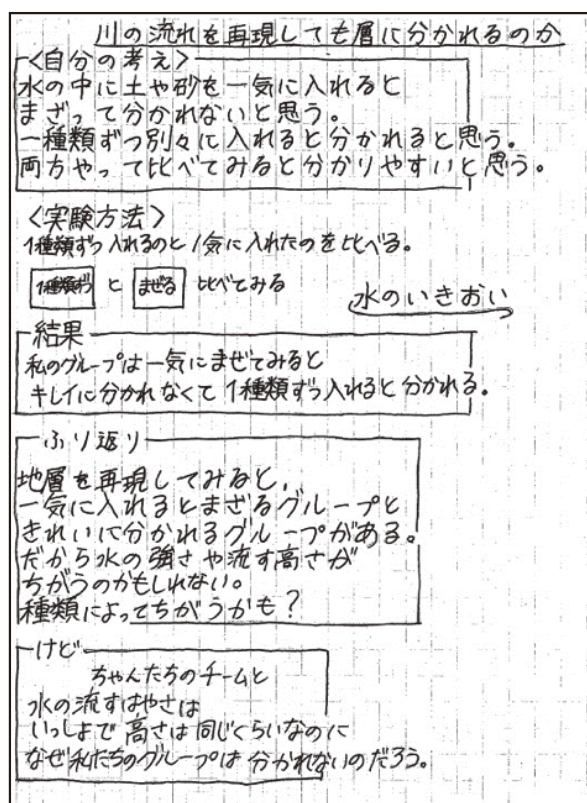 川の流れを再現しても層に分かれるのか
〈自分の考え〉
水の中に土や砂を一気に入れると
まざって分かれないと思う。
一種類ずつ別々に入れると分かれると思う。
両方やって比べてみると分かりやすいと思う。
〈実験方法〉
1種類ずつ入れるのと1気に入れたのを比べる。
1種類ずつ と まぜる 比べてみる
水のいきおい
結果
私のグループは一気にまぜてみると
キレイに分かれなくて1種類ずつ入れると分かれる。
ふり返り
地層を再現してみると、
一気に入れるとまざるグループと
きれいに分かれるグループがある。
だから水の強さや流す高さが
ちがうのかもしれない。
種類によってちがうかも？
けど
ちゃんたちのチームと
水の流すはやさは
いっしょで高さは同じくらいなのに
なぜ私たちのグループは分かれないのだろう。